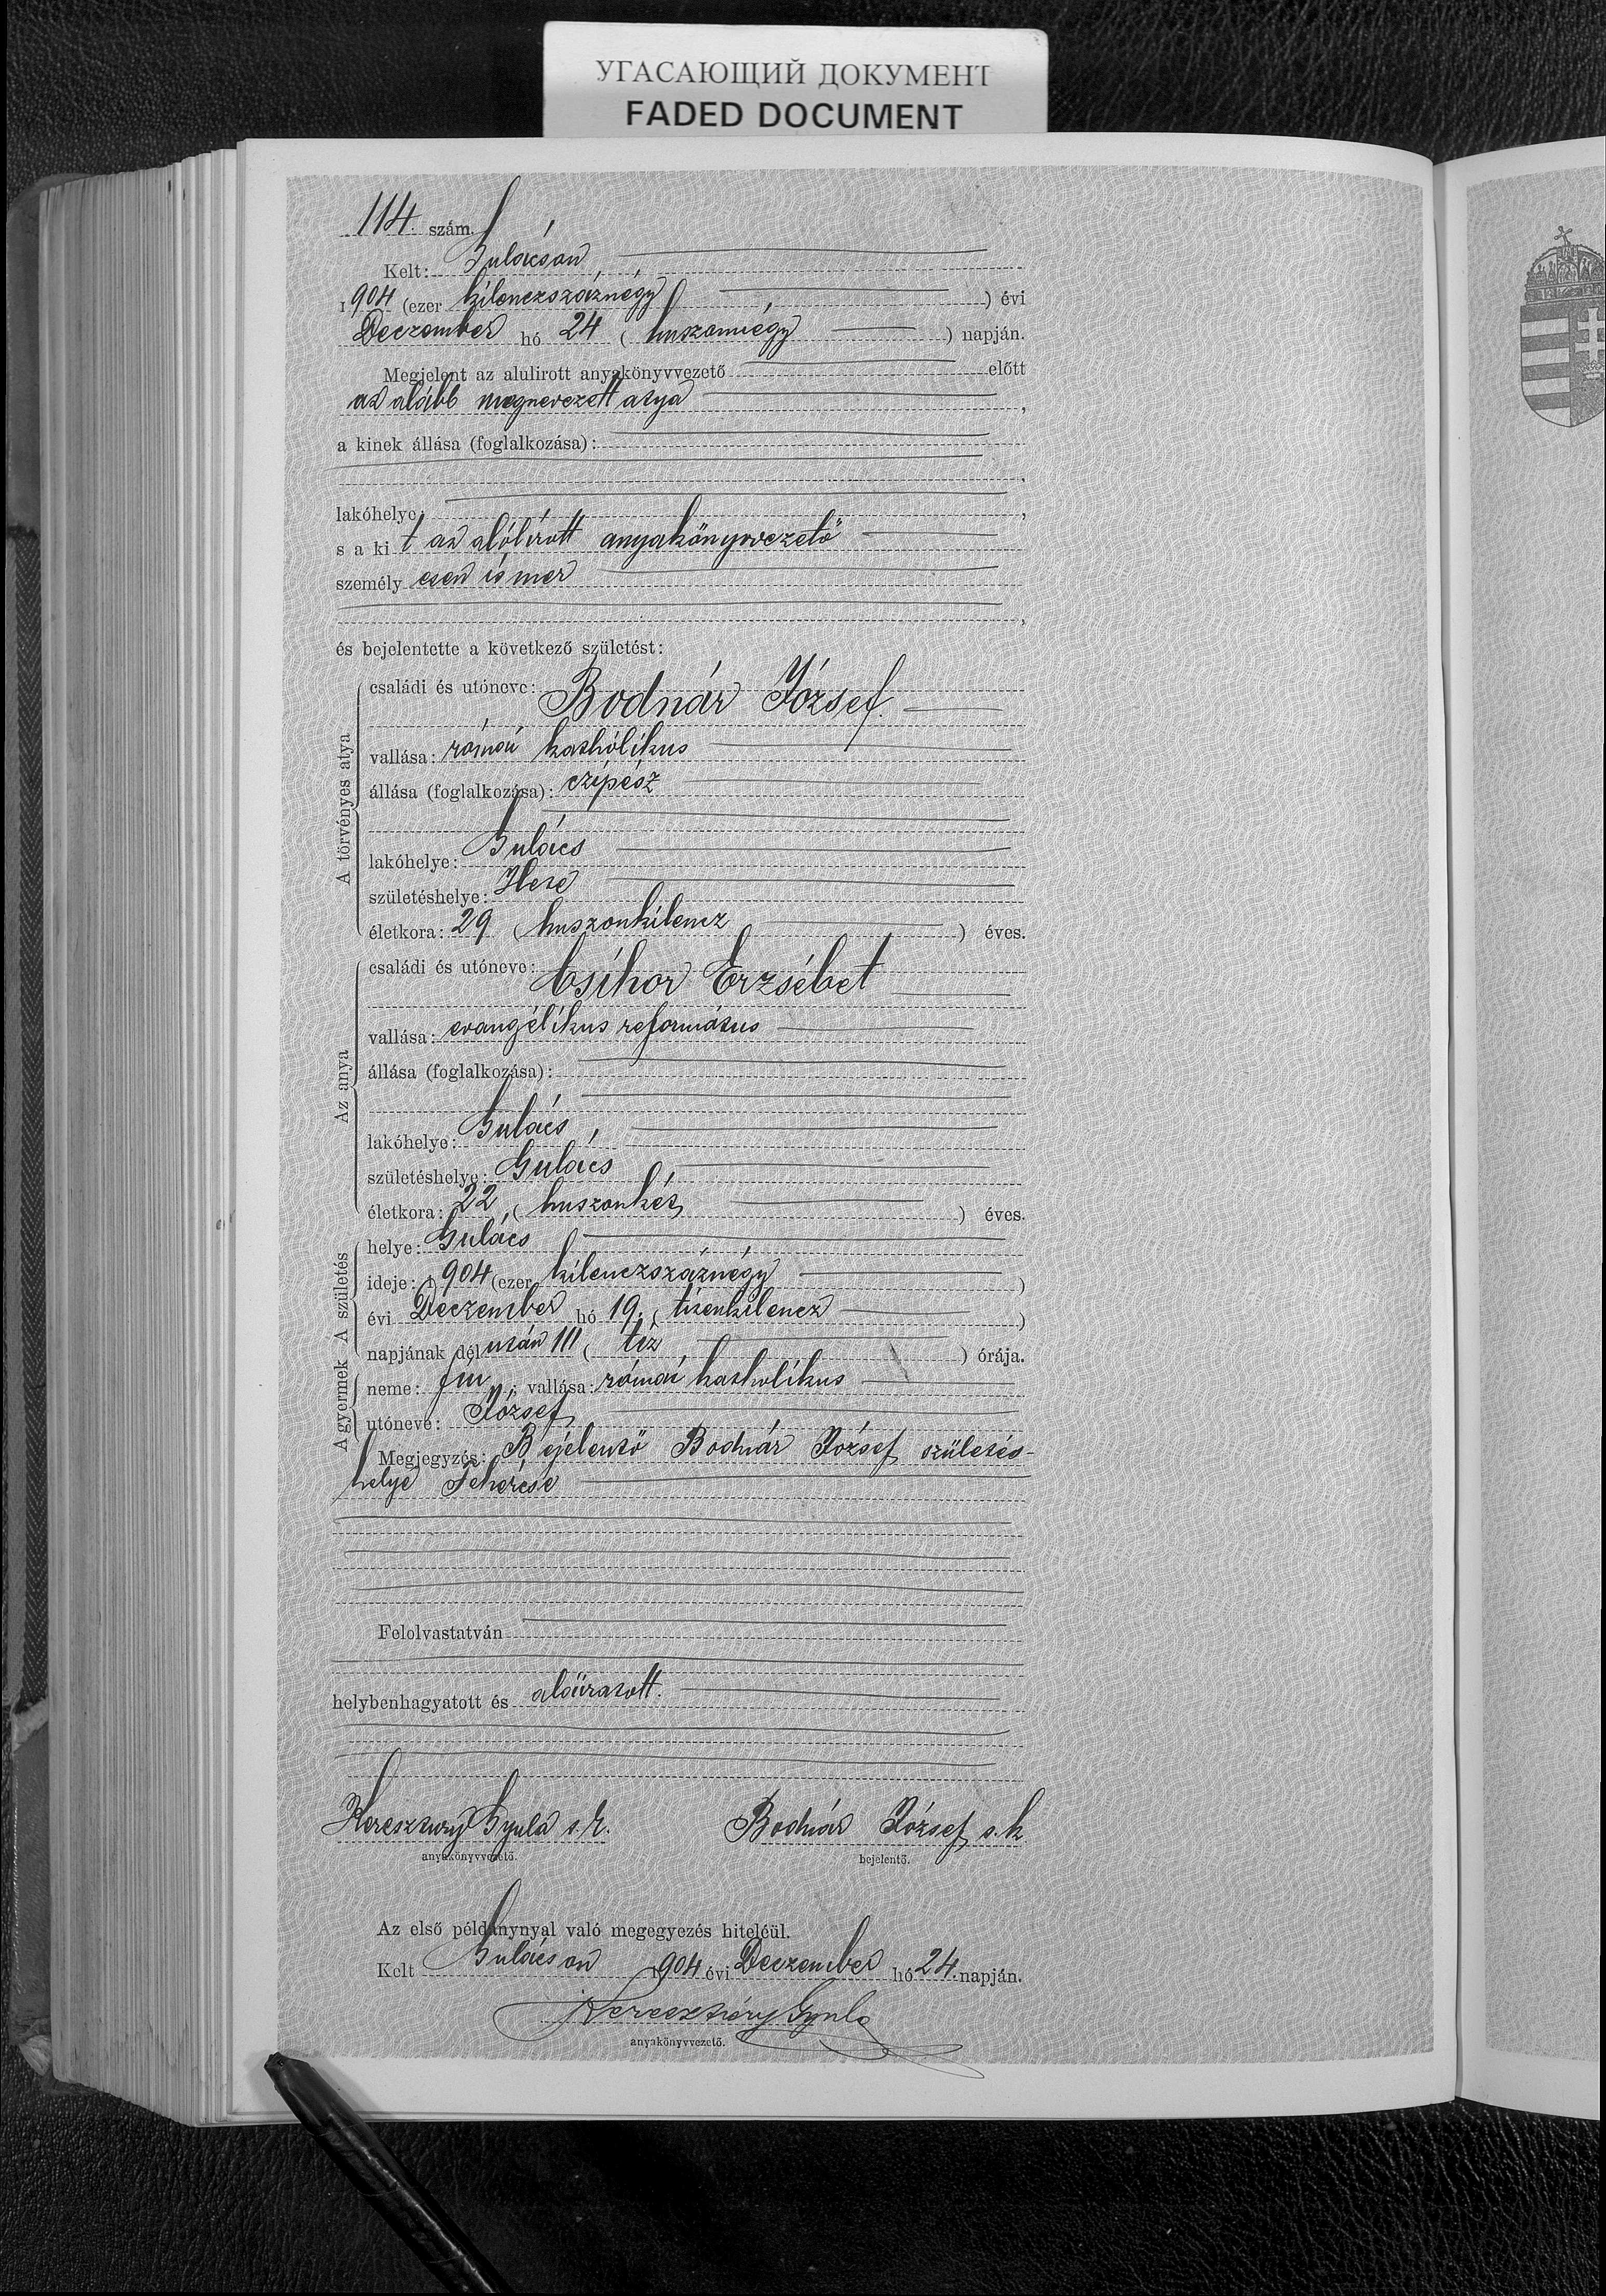 УГАСАЮЩИЙ ДОКУМЕНТ
FADED DOCUMENT
114. szám.
Kelt: Gulácson
1904 (ezer kilenczszáznégy) évi
Deczember hó 24 (huszonnégy) napján.
Megjelent az alulirott anyakönyvvezető előtt
az alább megnevezett atya,
a kinek állása (foglalkozása):
lakóhelye:
s a kit az alólirott anyakönyvvezető
személyesen ismer
és bejelentette a következő születést:
A törvényes atya
családi és utóneve: Bodnár József.
vallása: római katholikus
állása (foglalkozása): czipész
lakóhelye: Gulács
születéshelye:
életkora: 29 (huszonkilencz) éves.
Az anya
családi és utóneve: Csihor Erzsébet
vallása: evangélikus református
állása (foglalkozása):
lakóhelye: Gulács,
születéshelye: Gulács
életkora: 22 (huszonkét) éves.
A születés
helye: Gulács
ideje: 1904 (ezer kilenczszáznégy)
évi Deczember hó 19. (tizenkilencz)
napjának délután (tiz) órája.
A gyermek
neme: fiu; vallása: római katholikus
utóneve: József
Megjegyzés: Bejelentő Bodnár József születés-
helye
Felolvastatván
helybenhagyatott és aláiratott.
Keresztury Gyula s. k. Bodnár József s. k
anyakönyvvezető. bejelentő.
Az első példánynyal való megegyezés hiteléül.
Kelt Gulácson 1904 évi Deczember hó 24. napján.
Keresztury Gyula
anyakönyvvezető.